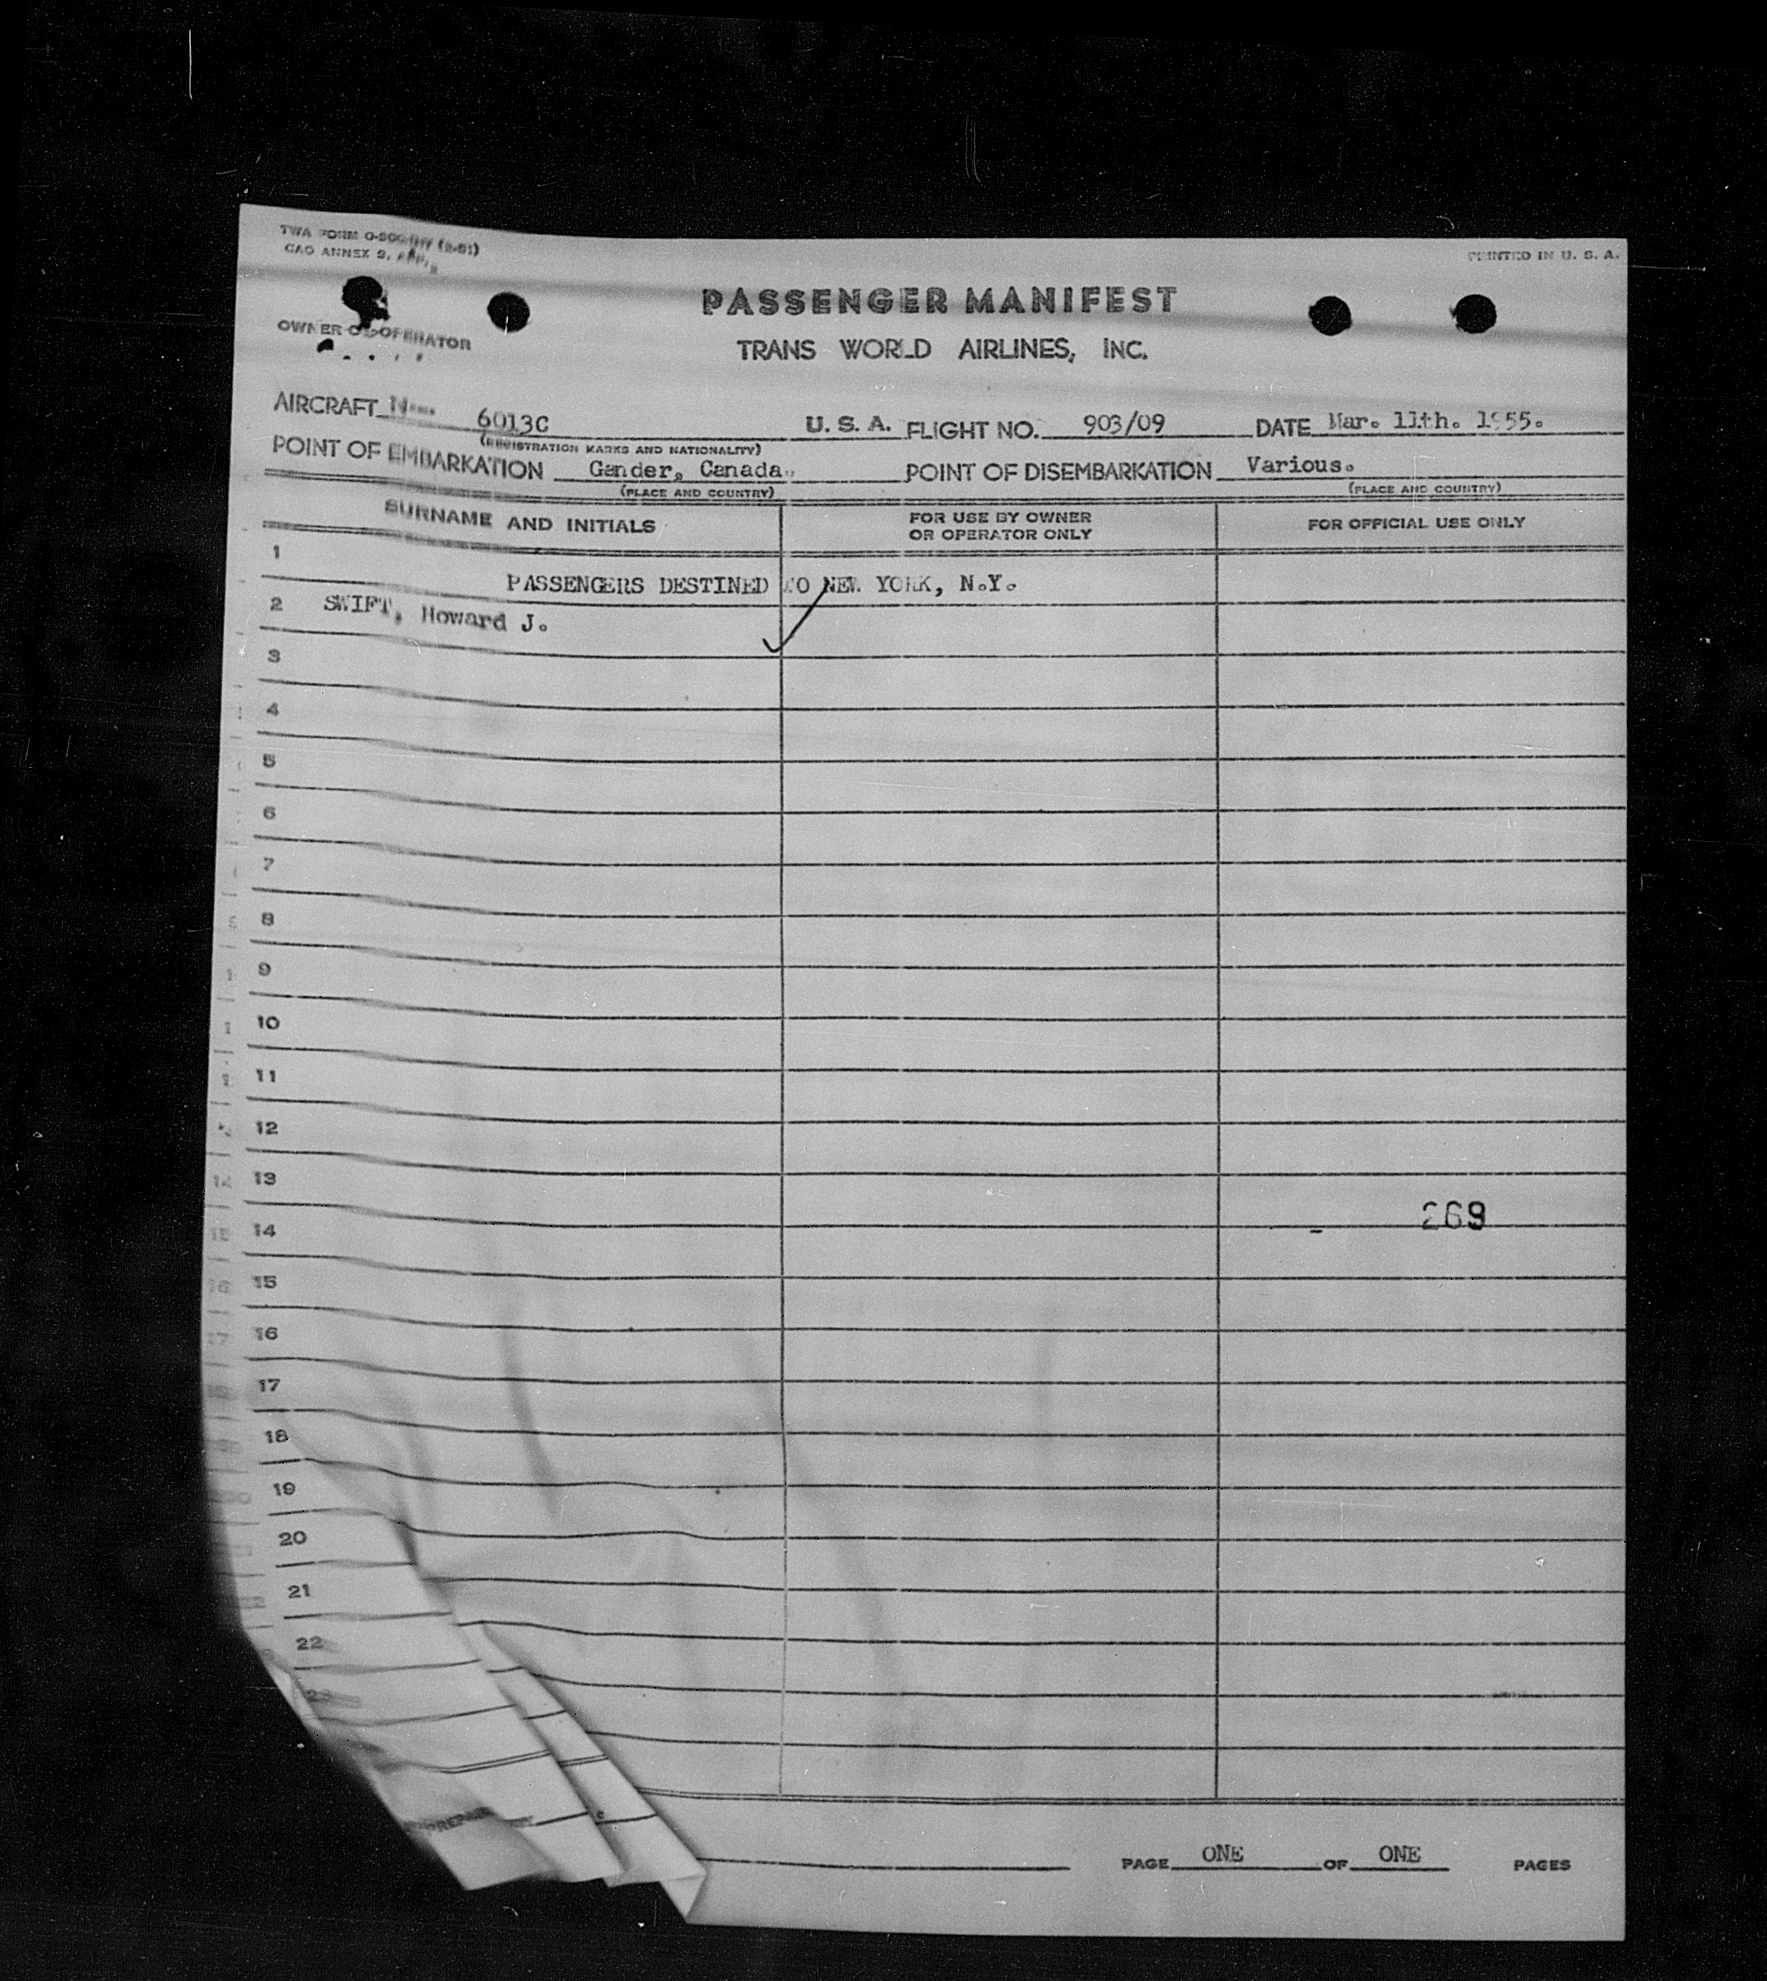 TWA FORM
CAO ANNEX 9, APP.
PRINTED IN U. S. A.
PASSENGER MANIFEST
OWNER OR OPERATOR
TRANS WORLD AIRLINES, INC.
AIRCRAFT 6013C U. S. A. FLIGHT NO. 903/09 DATE Mar. 11th. 1955.
(REGISTRATION MARKS AND NATIONALITY)
POINT OF EMBARKATION Gander, Canada. POINT OF DISEMBARKATION Various.
(PLACE AND COUNTRY) (PLACE AND COUNTRY)
SURNAME AND INITIALS FOR USE BY OWNER OR OPERATOR ONLY FOR OFFICIAL USE ONLY
1
PASSENGERS DESTINED TO NEW YORK, N.Y.
2 SWIFT, Howard J.
3
4
5
6
7
8
9
10
11
12
13
269
14
15
16
17
18
19
20
21
22
23
PAGE ONE OF ONE PAGES